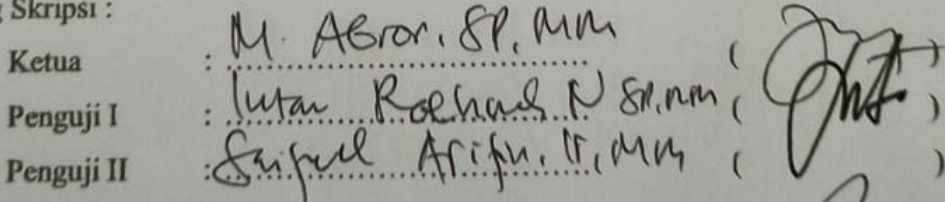 Skripsi :
Ketua : M. Abror, SP, MM ( )
Penguji I : Intan Rohmah N SP, MM ( )
Penguji II : Saiful Arifin, Ir, MM ( )